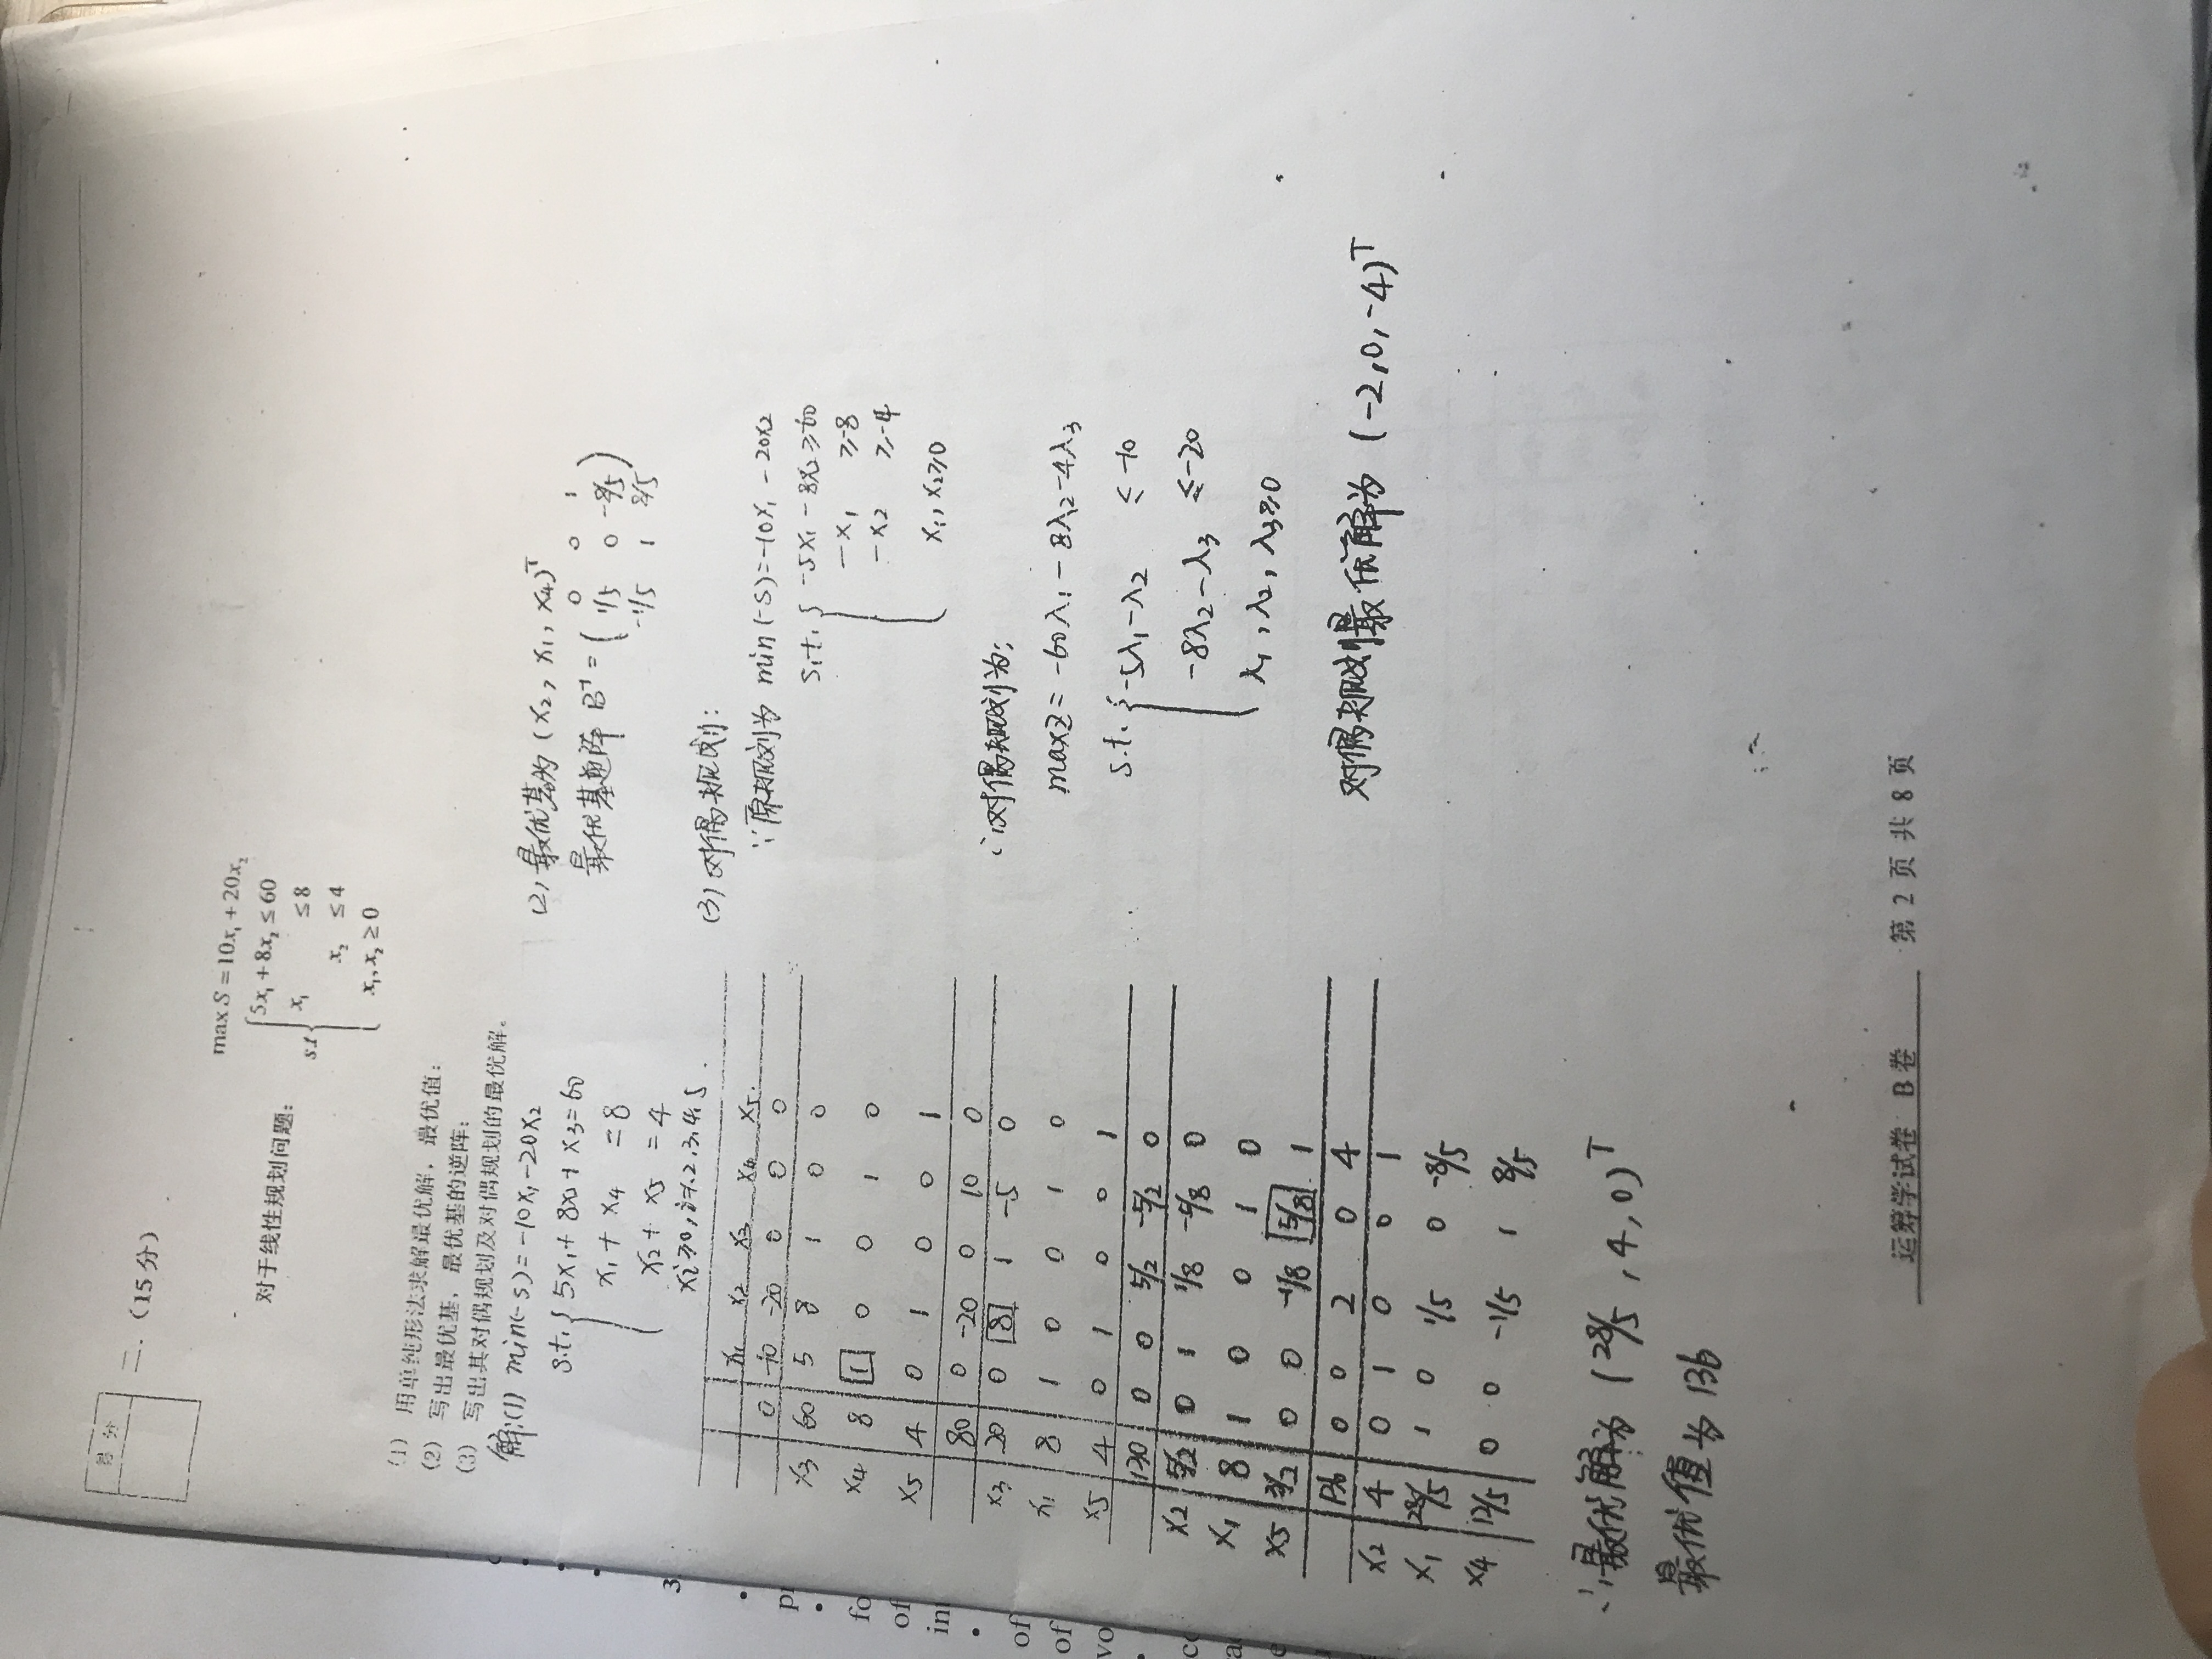 得分
二.（15分）
max S = 10x₁ + 20x₂
对于线性规划问题：
s.t
5x₁ + 8x₂ ≤ 60
x₁ ≤ 8
x₂ ≤ 4
x₁, x₂ ≥ 0
(1) 用单纯形法求解最优解，最优值；
(2) 写出最优基，最优基的逆阵；
(3) 写出其对偶规划及对偶规划的最优解。
解:(1) min(-S) = -10x₁ - 20x₂
s.t. { 5x₁ + 8x₂ + x₃ = 60
x₁ + x₄ = 8
x₂ + x₅ = 4
xi ≥ 0, i=1.2.3.4.5.
x₁ x₂ x₃ x₄ x₅.
0 -10 -20 0 0 0
x₃ 60 5 8 1 0 0
x₄ 8 1 0 0 1 0
x₅ 4 0 1 0 0 1
80 0 -20 0 10 0
x₃ 20 0 8 1 -5 0
x₁ 8 1 0 0 1 0
x₅ 4 0 1 0 0 1
130 0 0 5/2 -5/2 0
x₂ 5/2 0 1 1/8 -5/8 0
x₁ 8 1 0 0 1 0
x₅ 3/2 0 0 -1/8 5/8 1
136 0 0 2 0 4
x₂ 4 0 1 0 0 1
x₁ 28/5 1 0 1/5 0 -8/5
x₄ 12/5 0 0 -1/5 1 8/5
∴最优解为 (28/5, 4, 0)ᵀ
最优值为 136
(2) 最优基为 (x₂, x₁, x₄)ᵀ
0 0 1
最优基逆阵 B⁻¹ = ( 1/5 0 -8/5 )
-1/5 1 8/5
(3) 对偶规划:
∵原规划为 min(-S) = -10x₁ - 20x₂
s.t. { -5x₁ - 8x₂ ≥ -60
-x₁ ≥ -8
-x₂ ≥ -4
x₁, x₂ ≥ 0
∴对偶规划为;
max Z = -60λ₁ - 8λ₂ - 4λ₃
s.t. { -5λ₁ - λ₂ ≤ -10
-8λ₂ - λ₃ ≤ -20
λ₁, λ₂, λ₃ ≥ 0
对偶规划最优解为 (-2, 0, -4)ᵀ
运筹学试卷 B卷 第 2 页 共 8 页
3
of
in
of
of